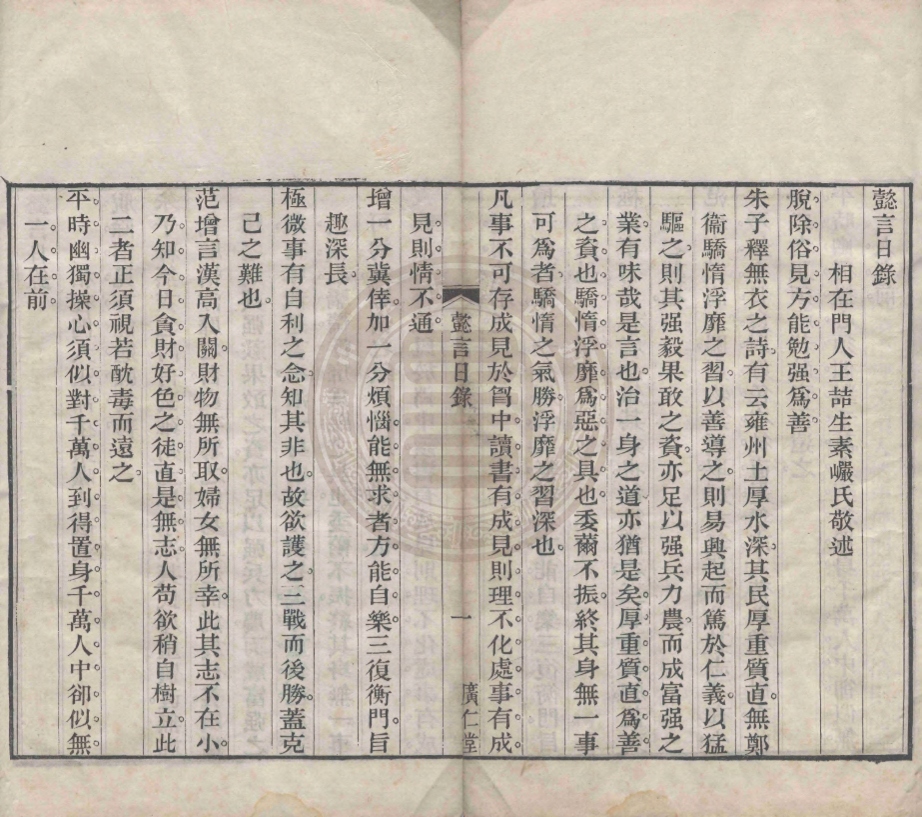 懿言日錄
相在門人王喆生素巗氏敬述
脫除俗見方能勉强爲善
朱子釋無衣之詩有云雍州土厚水深其民厚重質直無鄭
衞驕惰浮靡之習以善導之則易興起而篤於仁義以猛
驅之則其强毅果敢之資亦足以强兵力農而成富强之
業有味哉是言也治一身之道亦猶是矣厚重質直爲善
之資也驕惰浮靡爲惡之具也委薾不振終其身無一事
可爲者驕惰之氣勝浮靡之習深也
凡事不可存成見於胷中讀書有成見則理不化處事有成
懿言日錄
一
廣仁堂
見則情不通
增一分冀倖加一分煩惱能無求者方能自樂三復衡門旨
趣深長
極微事有自利之念知其非也故欲護之三戰而後勝蓋克
己之難也
范增言漢高入關財物無所取婦女無所幸此其志不在小
乃知今日貪財好色之徒直是無志人苟欲稍自樹立此
二者正須視若酖毒而遠之
平時幽獨操心須似對千萬人到得置身千萬人中卻似無
一人在前